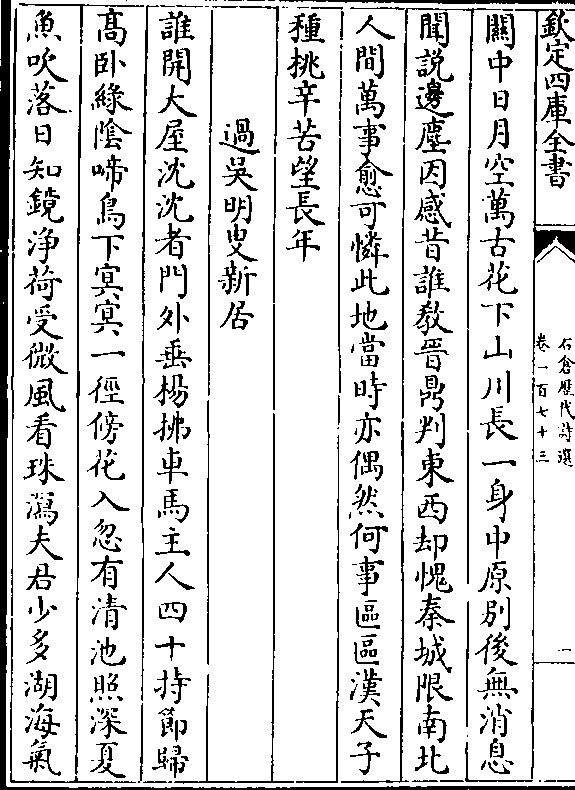 欽定四庫全書
石倉歷代詩選
卷一百七十三
一
關中日月空萬古花下山川長一身中原別後無消息
聞說邊塵因感昔誰教晉鼎判東西却愧秦城限南北
人間萬事愈可憐此地當時亦偶然何事區區漢天子
種桃辛苦望長年
過吳明叟新居
誰開大屋沈沈者門外垂楊拂車馬主人四十持節歸
髙卧緑陰啼鳥下冥冥一徑傍花入忽有清池照深夏
魚吹落日知鏡净荷受微風看珠瀉夫君少多湖海氣